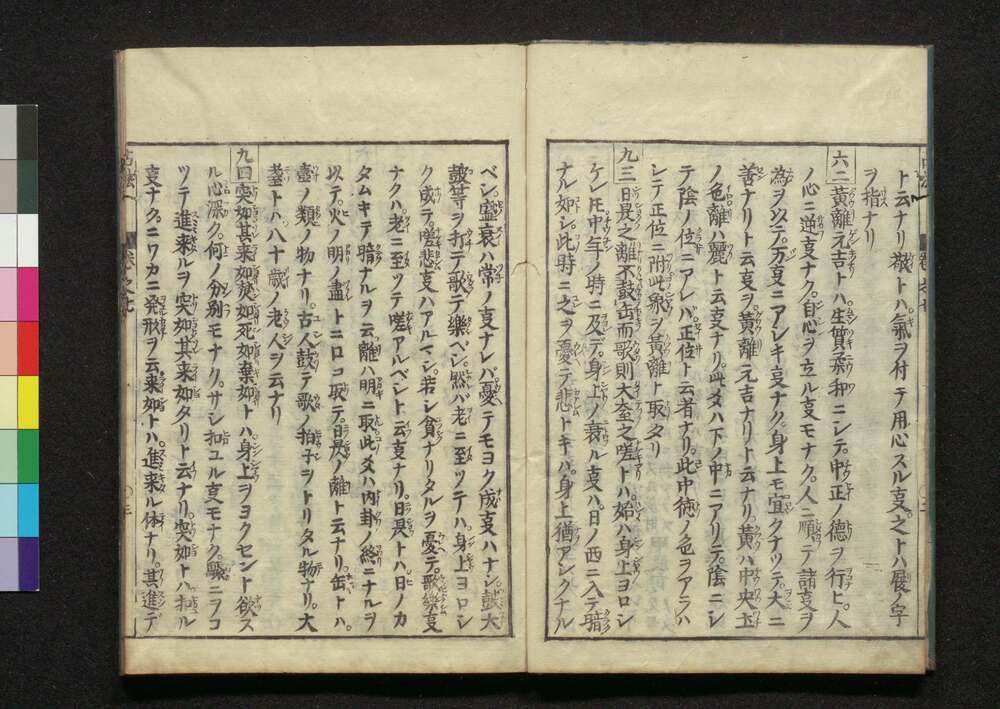 ト云ナリ敬トハ氣ヲ付テ用心スル㕝之トハ履ノ字
ヲ指ナリ
六二黄離元吉トハ生質柔和ニシテ中正ノ德ヲ行ヒ人
ノ心ニ逆㕝ナク自心ヲ立ル㕝モナク人ニ順テ諸㕝ヲ
為ヲ以テ万㕝ニアシキ㕝ナク身上モ宜クナツテ大ニ
善ナリト云㕝ヲ黄離元吉ナリト云ナリ黄ハ中央土
ノ色離ハ麗ト云㕝ナリ此爻ハ下ノ中ニアリテ陰ニシ
テ陰ノ位ニアレバ正位ト云者ナリ此中徳ノ色ヲアラハ
シテ正位ニ附此象ヲ黄離ト取タリ
九三日昃之離不鼓缶而歌則大耋之嗟トハ始ハ身上ヨロシ
ケレ𪜈中年ノ時ニ及デ身上ノ衰ル㕝ハ日ノ西ニ入テ暗
ナル如シ此時ニ之ヲ憂テ悲トキハ身上猶アシクナル
ベシ盛衰ハ常ノ㕝ナレバ憂テモヨク成㕝ハナシ鼓大
皷等ヲ打テ歌テ樂ベシ然バ老ニ至ツテハ身上ヨロシ
ク成テ嗟悲㕝ハアルマジ若シ貧ナリタルヲ憂テ歌樂㕝
ナクハ老ニ至ツテ嗟アルベシト云㕝ナリ日昃トハ日ノカ
タムキテ暗ナルヲ云離ハ明ニ取此爻ハ内卦ノ終ニナルヲ
以テ火ノ明ノ盡トニロコ取テ日昃ノ離ト云ナリ缶トハ
壷ノ類ノ物ナリ古人鼓テ歌ノ拍子ヲトリタル物ナリ大
耋トハ八十歳ノ老人ヲ云ナリ
九四突如其来如焚如死如棄如トハ身上ヲヨクセント欲ス
ル心深ク何ノ分別モナクサシ扣ユル㕝モナク騒ニヲコ
ツテ進来ルヲ突如其来如タリト云ナリ突如トハ
㕝ナクニワカニ発形ヲ云来如トハ進来ル体ナリ其進テ